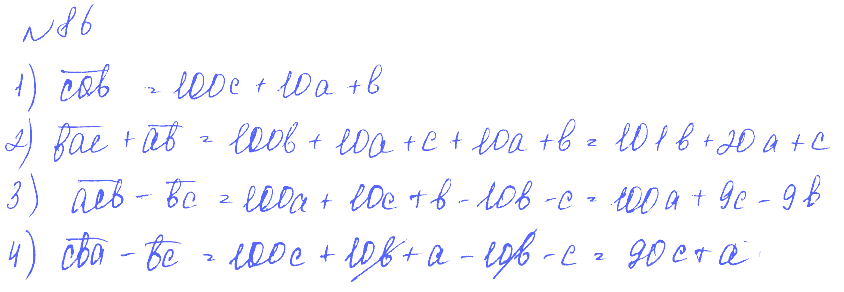 №86
1) c̅a̅b̅ = 100c + 10a + b
2) b̅a̅c̅ + a̅b̅ = 100b + 10a + c + 10a + b = 101b + 20a + c
3) a̅c̅b̅ - b̅c̅ = 100a + 10c + b - 10b - c = 100a + 9c - 9b
4) c̅b̅a̅ - b̅c̅ = 100c + 10b + a - 10b - c = 90c + a